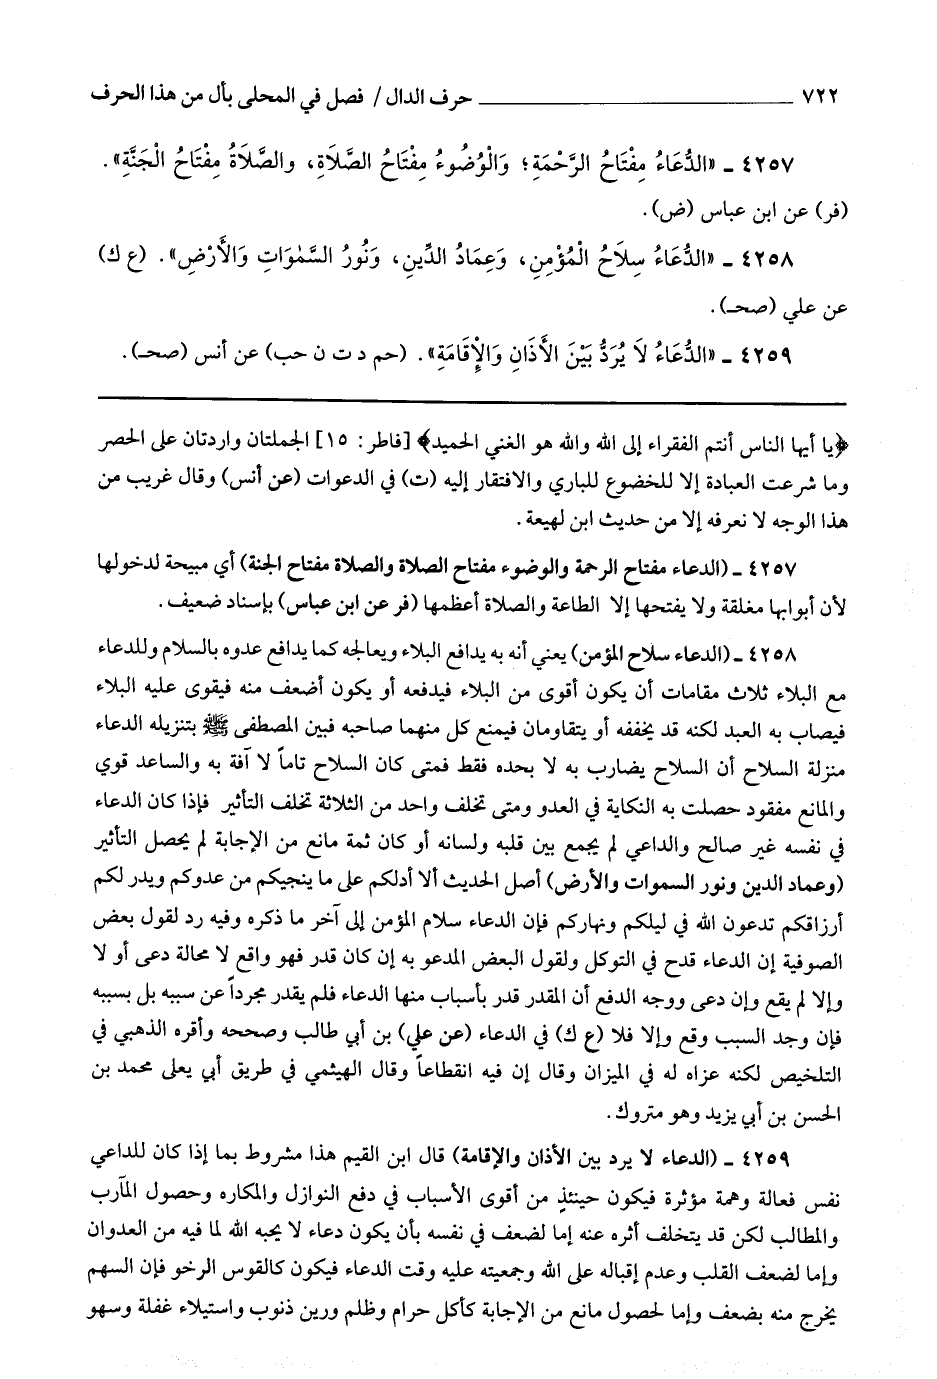 ٧٢٢ ـــــــــــــــــــــــــ حرف الدال / فصل في المحلى بأل من هذا الحرف
٤٢٥٧ ـ «الدُّعَاءُ مِفْتَاحُ الرَّحْمَةِ؛ وَالْوُضُوءُ مِفْتَاحُ الصَّلاَةِ، والصَّلاَةُ مِفْتَاحُ الْجَنَّةِ».
(فر) عن ابن عباس (ض).
٤٢٥٨ ـ «الدُّعَاءُ سِلاَحُ الْمُؤْمِنِ، وَعِمَادُ الدِّينِ، وَنُورُ السَّمٰوَاتِ وَالأَرْضِ». (ع ك)
عن علي (صحـ).
٤٢٥٩ ـ «الدُّعَاءُ لاَ يُرَدُّ بَيْنَ الأَذَانِ وَالإِقَامَةِ». (حم د ت ن حب) عن أنس (صحـ).
﴿يا أيها الناس أنتم الفقراء إلى الله والله هو الغني الحميد﴾ [فاطر: ١٥] الجملتان واردتان على الحصر
وما شرعت العبادة إلا للخضوع للباري والافتقار إليه (ت) في الدعوات (عن أنس) وقال غريب من
هذا الوجه لا نعرفه إلا من حديث ابن لهيعة.
٤٢٥٧ ـ (الدعاء مفتاح الرحمة والوضوء مفتاح الصلاة والصلاة مفتاح الجنة) أي مبيحة لدخولها
لأن أبوابها مغلقة ولا يفتحها إلا الطاعة والصلاة أعظمها (فر عن ابن عباس) بإسناد ضعيف.
٤٢٥٨ ـ (الدعاء سلاح المؤمن) يعني أنه به يدافع البلاء ويعالجه كما يدافع عدوه بالسلام وللدعاء
مع البلاء ثلاث مقامات أن يكون أقوى من البلاء فيدفعه أو يكون أضعف منه فيقوى عليه البلاء
فيصاب به العبد لكنه قد يخففه أو يتقاومان فيمنع كل منهما صاحبه فبين المصطفى ﷺ بتنزيله الدعاء
منزلة السلاح أن السلاح يضارب به لا بحده فقط فمتى كان السلاح تاماً لا آفة به والساعد قوي
والمانع مفقود حصلت به النكاية في العدو ومتى تخلف واحد من الثلاثة تخلف التأثير فإذا كان الدعاء
في نفسه غير صالح والداعي لم يجمع بين قلبه ولسانه أو كان ثمة مانع من الإجابة لم يحصل التأثير
(وعماد الدين ونور السموات والأرض) أصل الحديث ألا أدلكم على ما ينجيكم من عدوكم ويدر لكم
أرزاقكم تدعون الله في ليلكم ونهاركم فإن الدعاء سلام المؤمن إلى آخر ما ذكره وفيه رد لقول بعض
الصوفية إن الدعاء قدح في التوكل ولقول البعض المدعو به إن كان قدر فهو واقع لا محالة دعى أو لا
وإلا لم يقع وإن دعى ووجه الدفع أن المقدر قدر بأسباب منها الدعاء فلم يقدر مجرداً عن سببه بل بسببه
فإن وجد السبب وقع وإلا فلا (ع ك) في الدعاء (عن علي) بن أبي طالب وصححه وأقره الذهبي في
التلخيص لكنه عزاه له في الميزان وقال إن فيه انقطاعاً وقال الهيثمي في طريق أبي يعلى محمد بن
الحسن بن أبي يزيد وهو متروك.
٤٢٥٩ ـ (الدعاء لا يرد بين الأذان والإقامة) قال ابن القيم هذا مشروط بما إذا كان للداعي
نفس فعالة وهمة مؤثرة فيكون حينئذٍ من أقوى الأسباب في دفع النوازل والمكاره وحصول المآرب
والمطالب لكن قد يتخلف أثره عنه إما لضعف في نفسه بأن يكون دعاء لا يحبه الله لما فيه من العدوان
وإما لضعف القلب وعدم إقباله على الله وجمعيته عليه وقت الدعاء فيكون كالقوس الرخو فإن السهم
يخرج منه بضعف وإما لحصول مانع من الإجابة كأكل حرام وظلم ورين ذنوب واستيلاء غفلة وسهو